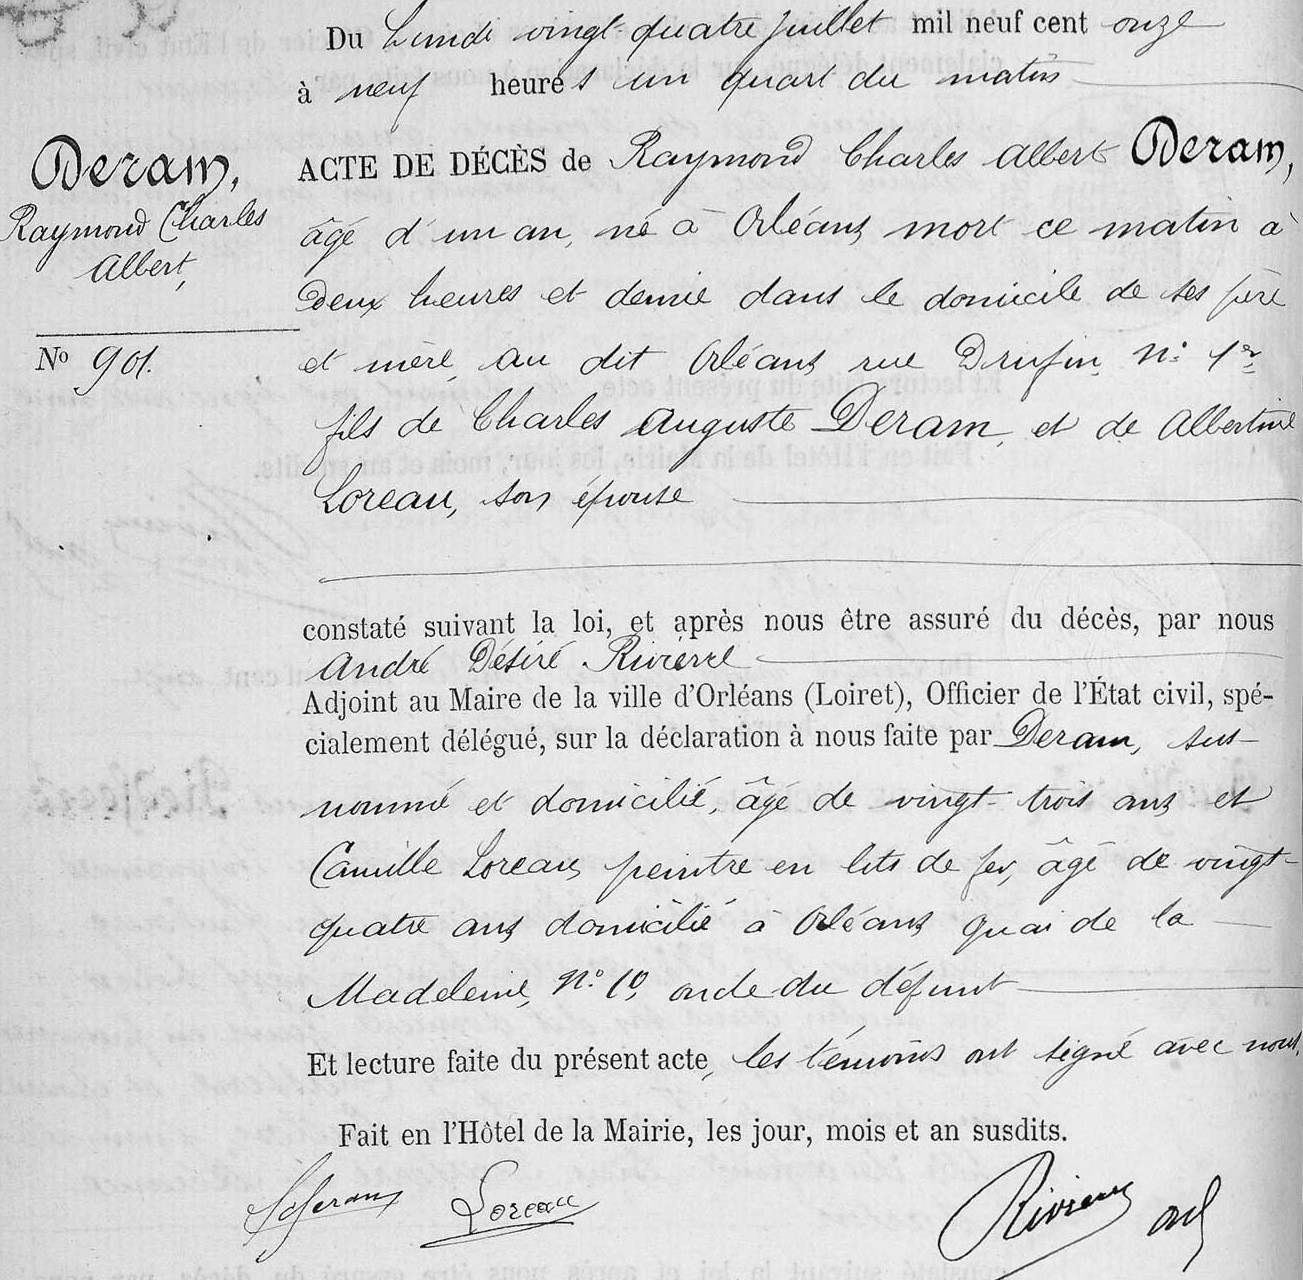 Du Lundi vingt-quatre juillet mil neuf cent onze
à neuf heures un quart du matin
Deram,
Raymond Charles
Albert,
No 901.
ACTE DE DÉCÈS de Raymond Charles Albert Deram,
âgé d'un an, né à Orléans mort ce matin à
deux heures et demie dans le domicile de ses père
et mère au dit Orléans rue Drufin No 1er
fils de Charles Auguste Deram, et de Albertine
Loreau, son épouse
constaté suivant la loi, et après nous être assuré du décès, par nous
André Désiré Rivierre
Adjoint au Maire de la ville d'Orléans (Loiret), Officier de l'État civil, spé-
cialement délégué, sur la déclaration à nous faite par Deram, sus-
nommé et domicilié, âgé de vingt-trois ans et
Camille Loreau, peintre en lits de fer, âgé de vingt-
quatre ans domicilié à Orléans quai de la
Madeleine, No 10, oncle du défunt
Et lecture faite du présent acte, les témoins ont signé avec nous.
Fait en l'Hôtel de la Mairie, les jour, mois et an susdits.
Deram Loreau Rivierre adj